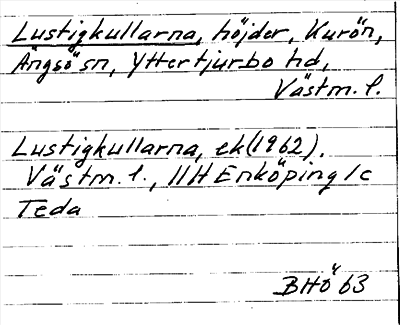 Lustigkullarna, höjder, Kurön,
Ängsö sn, Yttertjurbo hd,
Västm. l.
Lustigkullarna, ek (1962).
Västm. l., 11H Enköping 1c
Teda
BHÖ 63